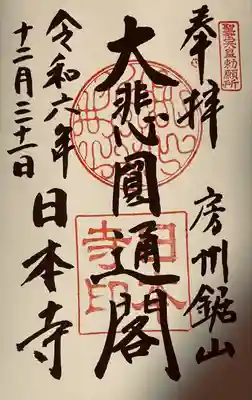 聖武皇勅願所
奉拝
房州鋸山
大悲圓通閣
日本寺印
令和六年
十二月三十一日
日本寺